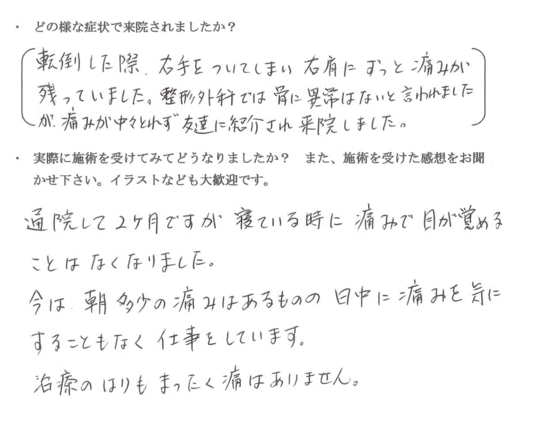 ・ どの様な症状で来院されましたか？
転倒した際、右手をついてしまい右肩にずっと痛みが
残っていました。整形外科では骨に異常はないと言われました
が、痛みが中々とれず友達に紹介され来院しました。
・ 実際に施術を受けてみてどうなりましたか？ また、施術を受けた感想をお聞
かせ下さい。イラストなども大歓迎です。
通院して2ヶ月ですが寝ている時に痛みで目が覚める
ことはなくなりました。
今は、朝多少の痛みはあるものの日中に痛みを気に
することもなく仕事をしています。
治療のはりもまったく痛はありません。